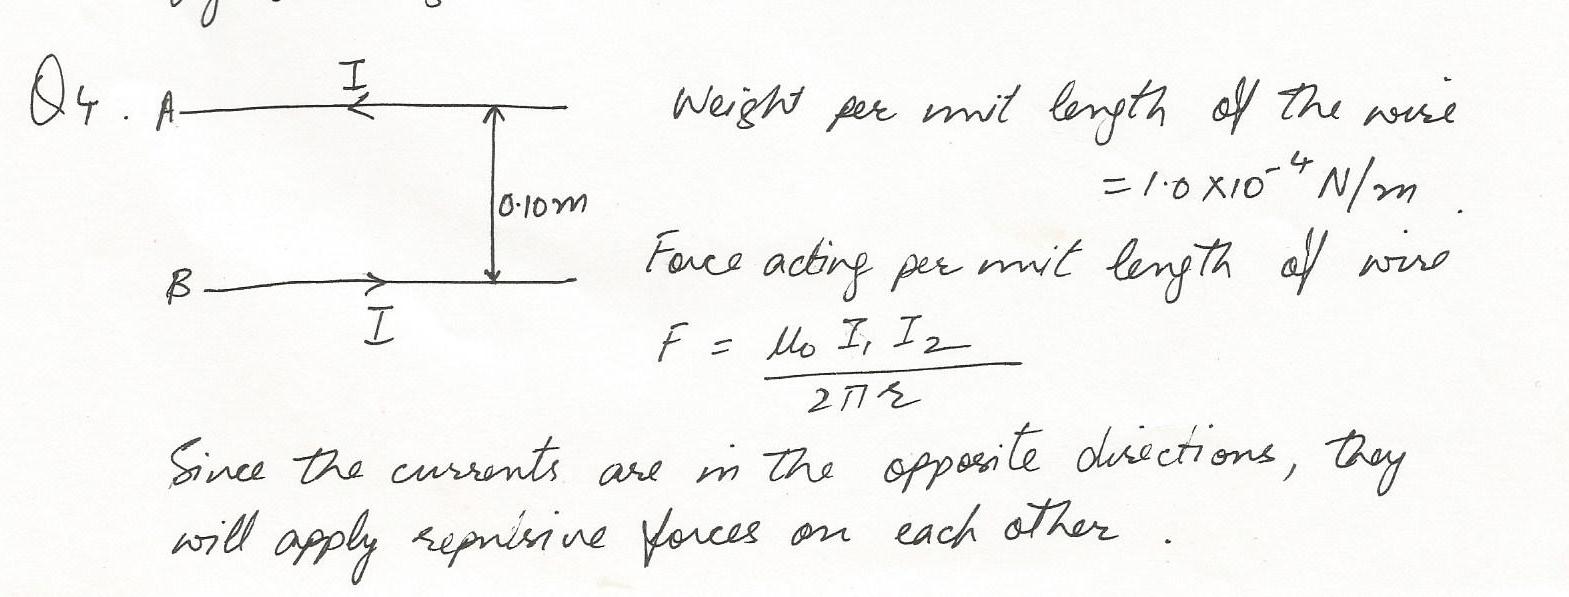 Q4. A I
Weight per unit length of the wire
= 1.0 X10⁻⁴ N/m.
0.10m
B I
Force acting per unit length of wire
F = μ₀ I₁ I₂
2πr
Since the currents are in the opposite directions, they
will apply repulsive forces on each other.